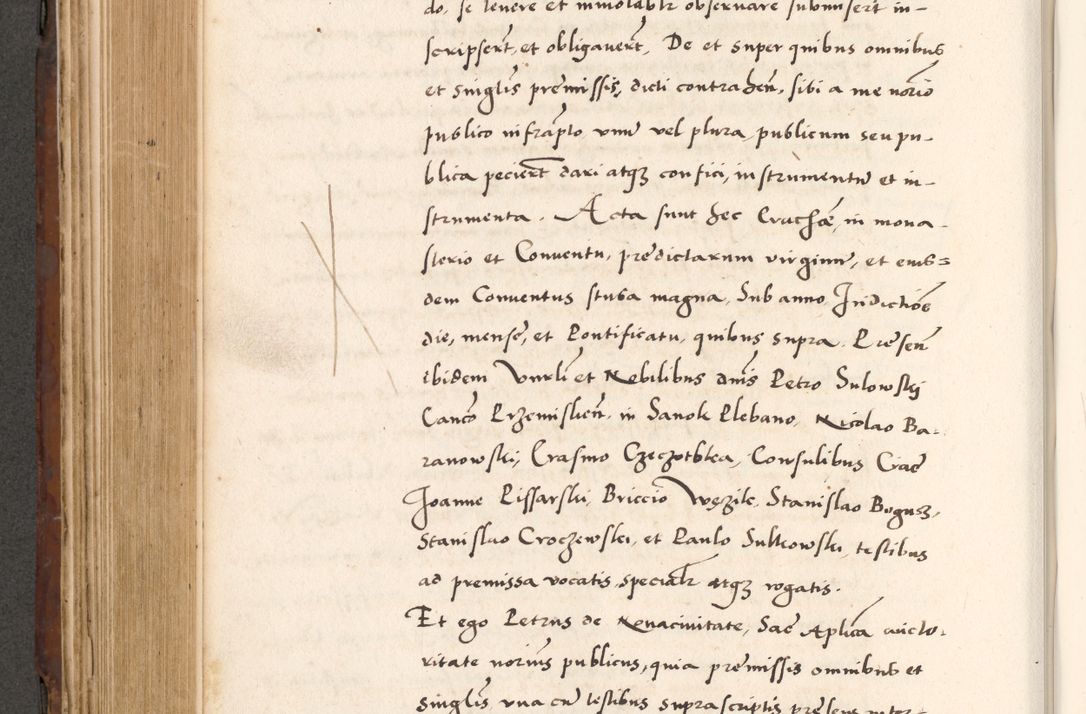 do, se tenere et inviolablr observare submisert in-
scripsert, et obligavert, De et super quibus omnibus
et singlis premissis, dicti contrahen, sibi a me norio
publico infrapto, vnu vel plura, publicum seu pu-
blica peciert dari atqz confici, instrumentu et in-
strumenta. Acta sunt hec Cracoviae, in mona-
sterio et Conuentu, predictarum virginu, et eius=
dem Conuentus stuba magna, Sub anno, Indictioe
die, mense, et Pontificatu, quibus supra. Presen
ibidem et Nobilibus dnis Petro Sulowskj
Canco Przemislien, in Sanok Plebano, Nicolao Ba-
ranowski, Erasmo Czeczotbka, Consulibus Crac
Joanne Pissarski, Briccio Stanislao Bogusz,
Stanislao Croczewski, et Paulo Sulkowski, testibus
ad premissa vocatis specialr atqz rogatis.
Et ego Petrus de Novacivitate, Sac Aplica aucto-
ritate norius publicus, quia premissis omnibus et
singlis, vna cu testibus suprascriptis presens inter-